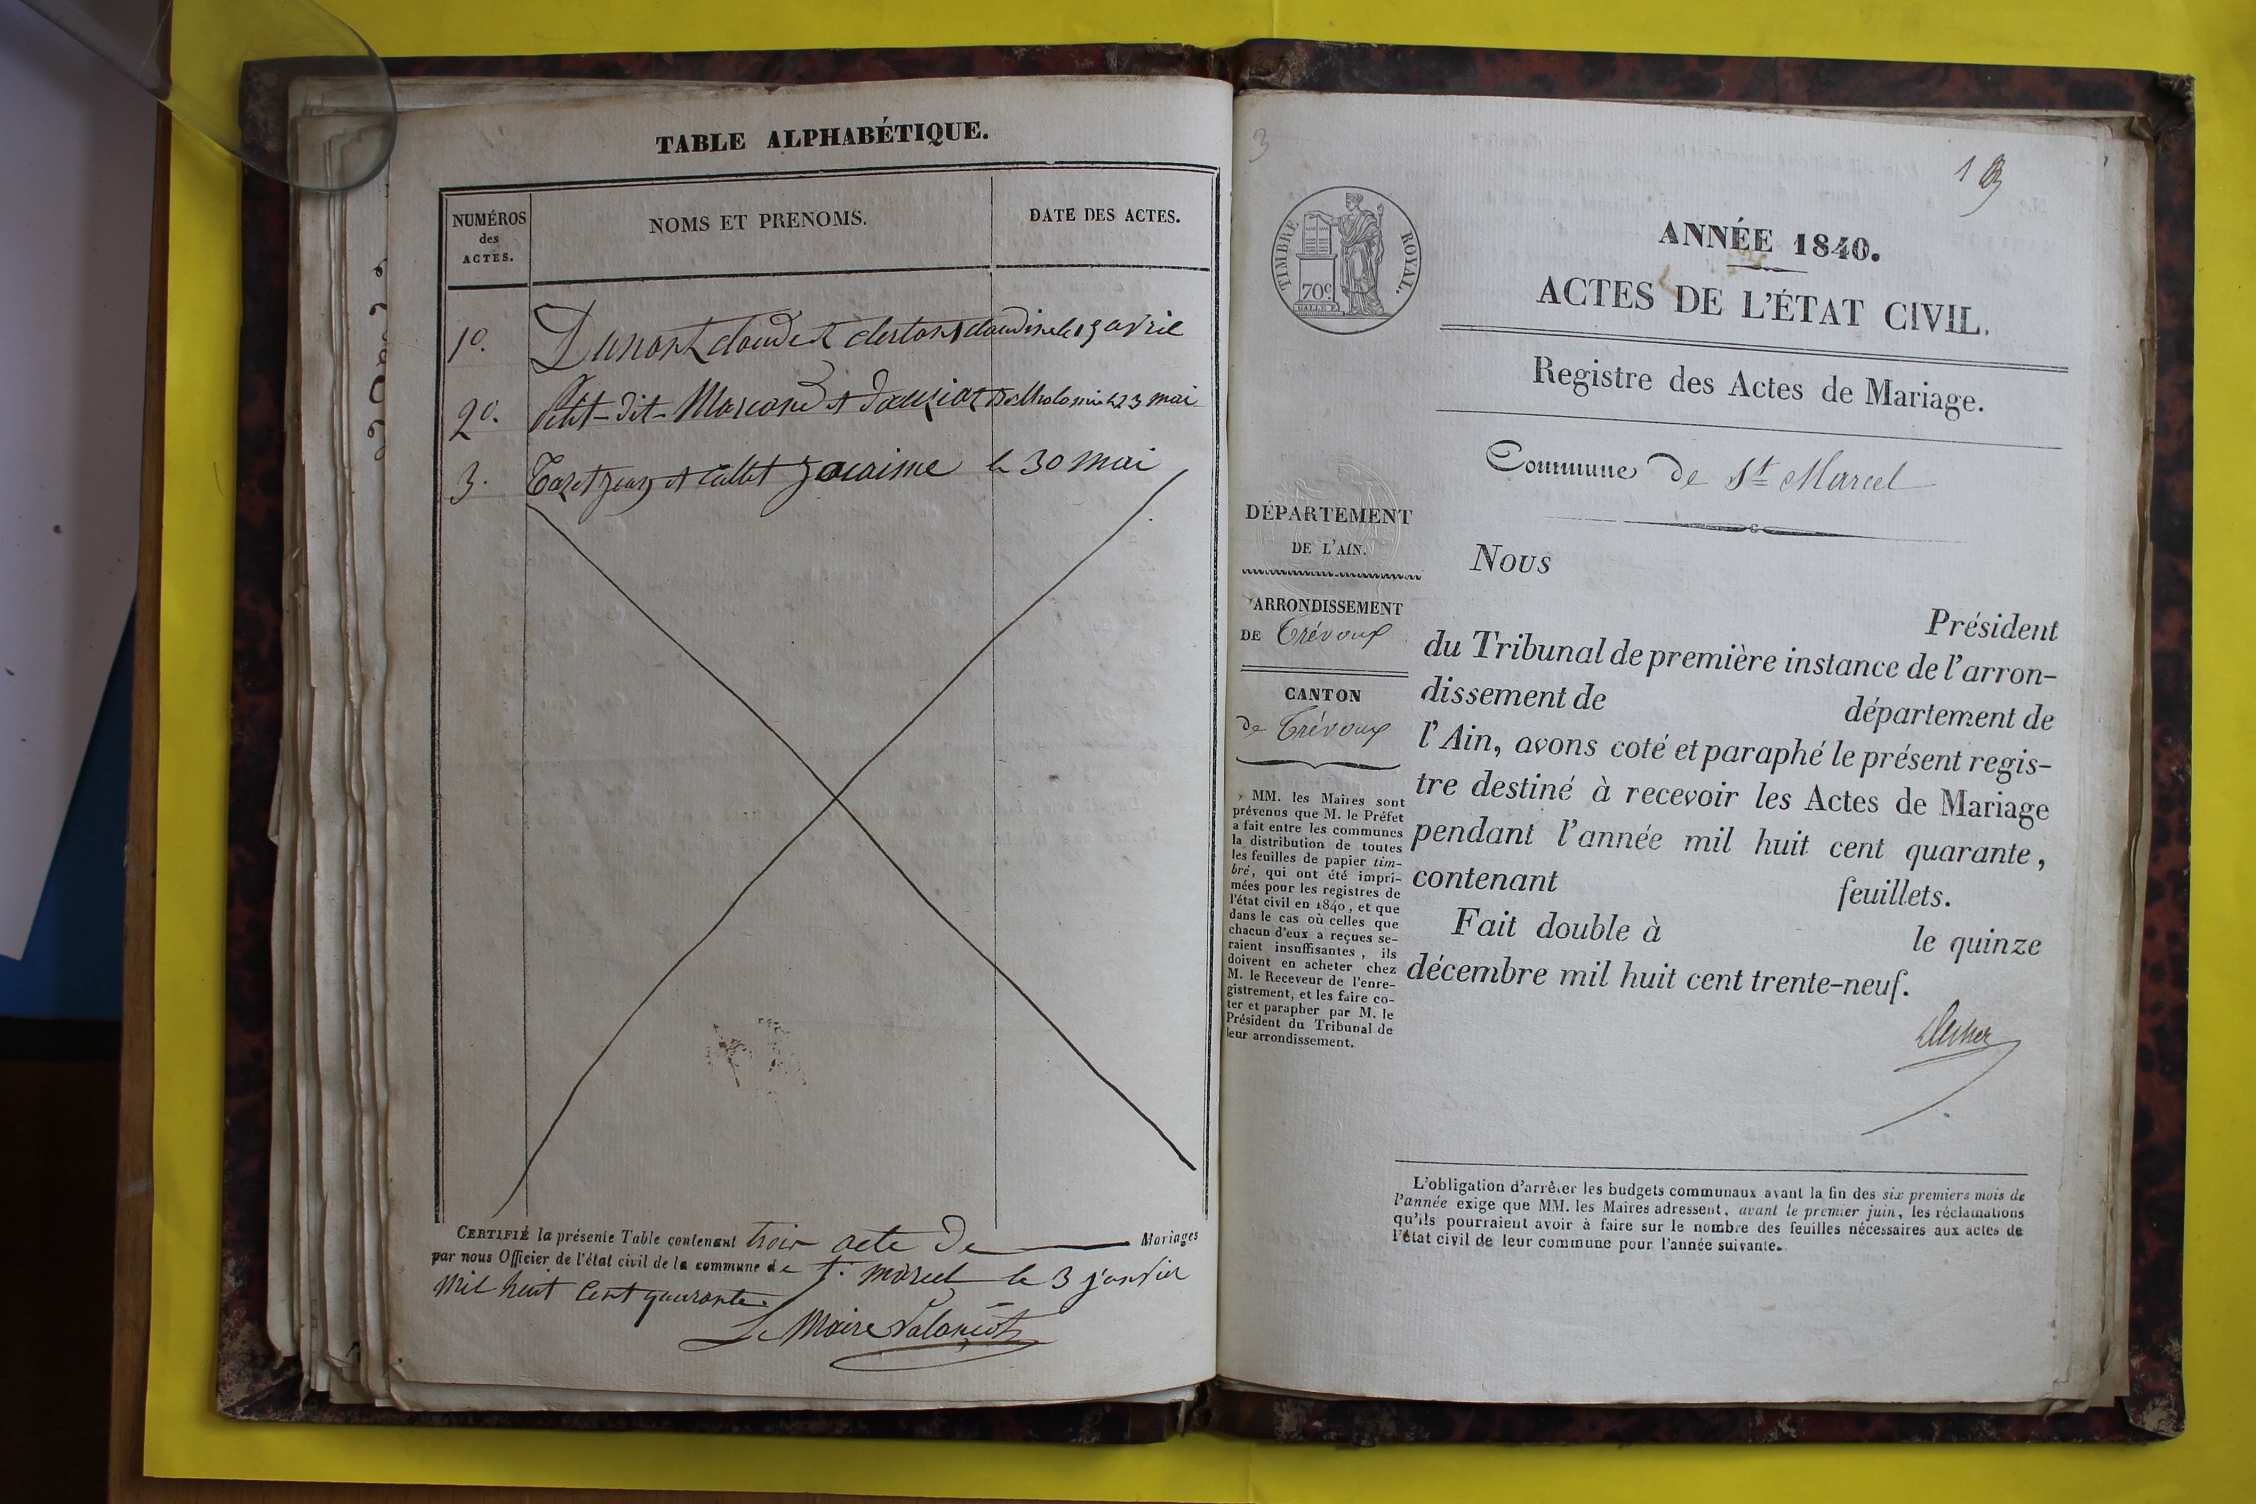 TABLE ALPHABÉTIQUE.
NUMÉROS
des
ACTES.
NOMS ET PRENOMS.
DATE DES ACTES.
1º. claude et claudine le 15 avril
2º. Petit-dit-Marcand et 23 mai
3. jean et Callet le 30 mai
CERTIFIÉ la présente Table contenant trois acte de Mariages
par nous Officier de l'état civil de la commune de St. marcel le 3 janvier
mil huit Cent quarante.
Le Maire
3
1
TIMBRE ROYAL.
70c
ANNÉE 1840.
ACTES DE L'ÉTAT CIVIL.
Registre des Actes de Mariage.
Commune de St Marcel
DÉPARTEMENT
DE L'AIN.
ARRONDISSEMENT
DE Trévoux
CANTON
de Trévoux
MM. les Maires sont
prévenus que M. le Préfet
a fait entre les communes
la distribution de toutes
les feuilles de papier tim-
bré, qui ont été impri-
mées pour les registres de
l'état civil en 1840, et que
dans le cas où celles que
chacun d'eux a reçues se-
raient insuffisantes, ils
doivent en acheter chez
M. le Receveur de l'enre-
gistrement, et les faire co-
ter et parapher par M. le
Président du Tribunal de
leur arrondissement.
Nous
Président
du Tribunal de première instance de l'arron-
dissement de département de
l'Ain, avons coté et paraphé le présent regis-
tre destiné à recevoir les Actes de Mariage
pendant l'année mil huit cent quarante,
contenant feuillets.
Fait double à le quinze
décembre mil huit cent trente-neuf.
L'obligation d'arrêter les budgets communaux avant la fin des six premiers mois de
l'année exige que MM. les Maires adressent, avant le premier juin, les réclamations
qu'ils pourraient avoir à faire sur le nombre des feuilles nécessaires aux actes de
l'état civil de leur commune pour l'année suivante.